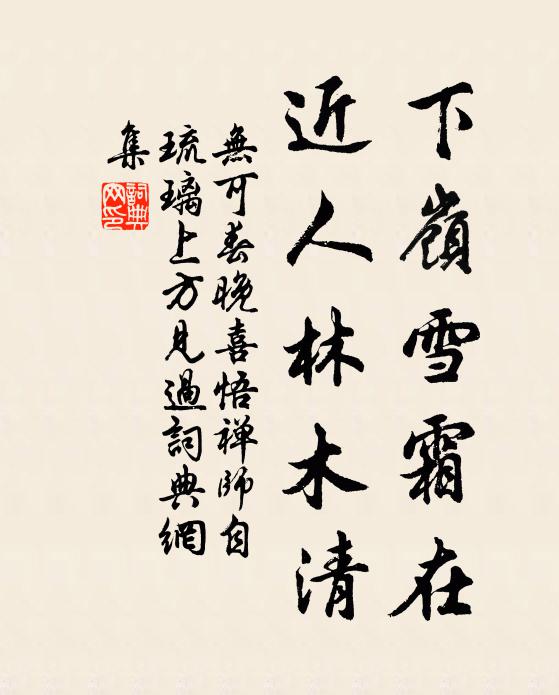 下嶺雪霜在
近人林木清
無可春晚喜悟禅師自
琉璃上方見過詞典網
集
詞典
网印